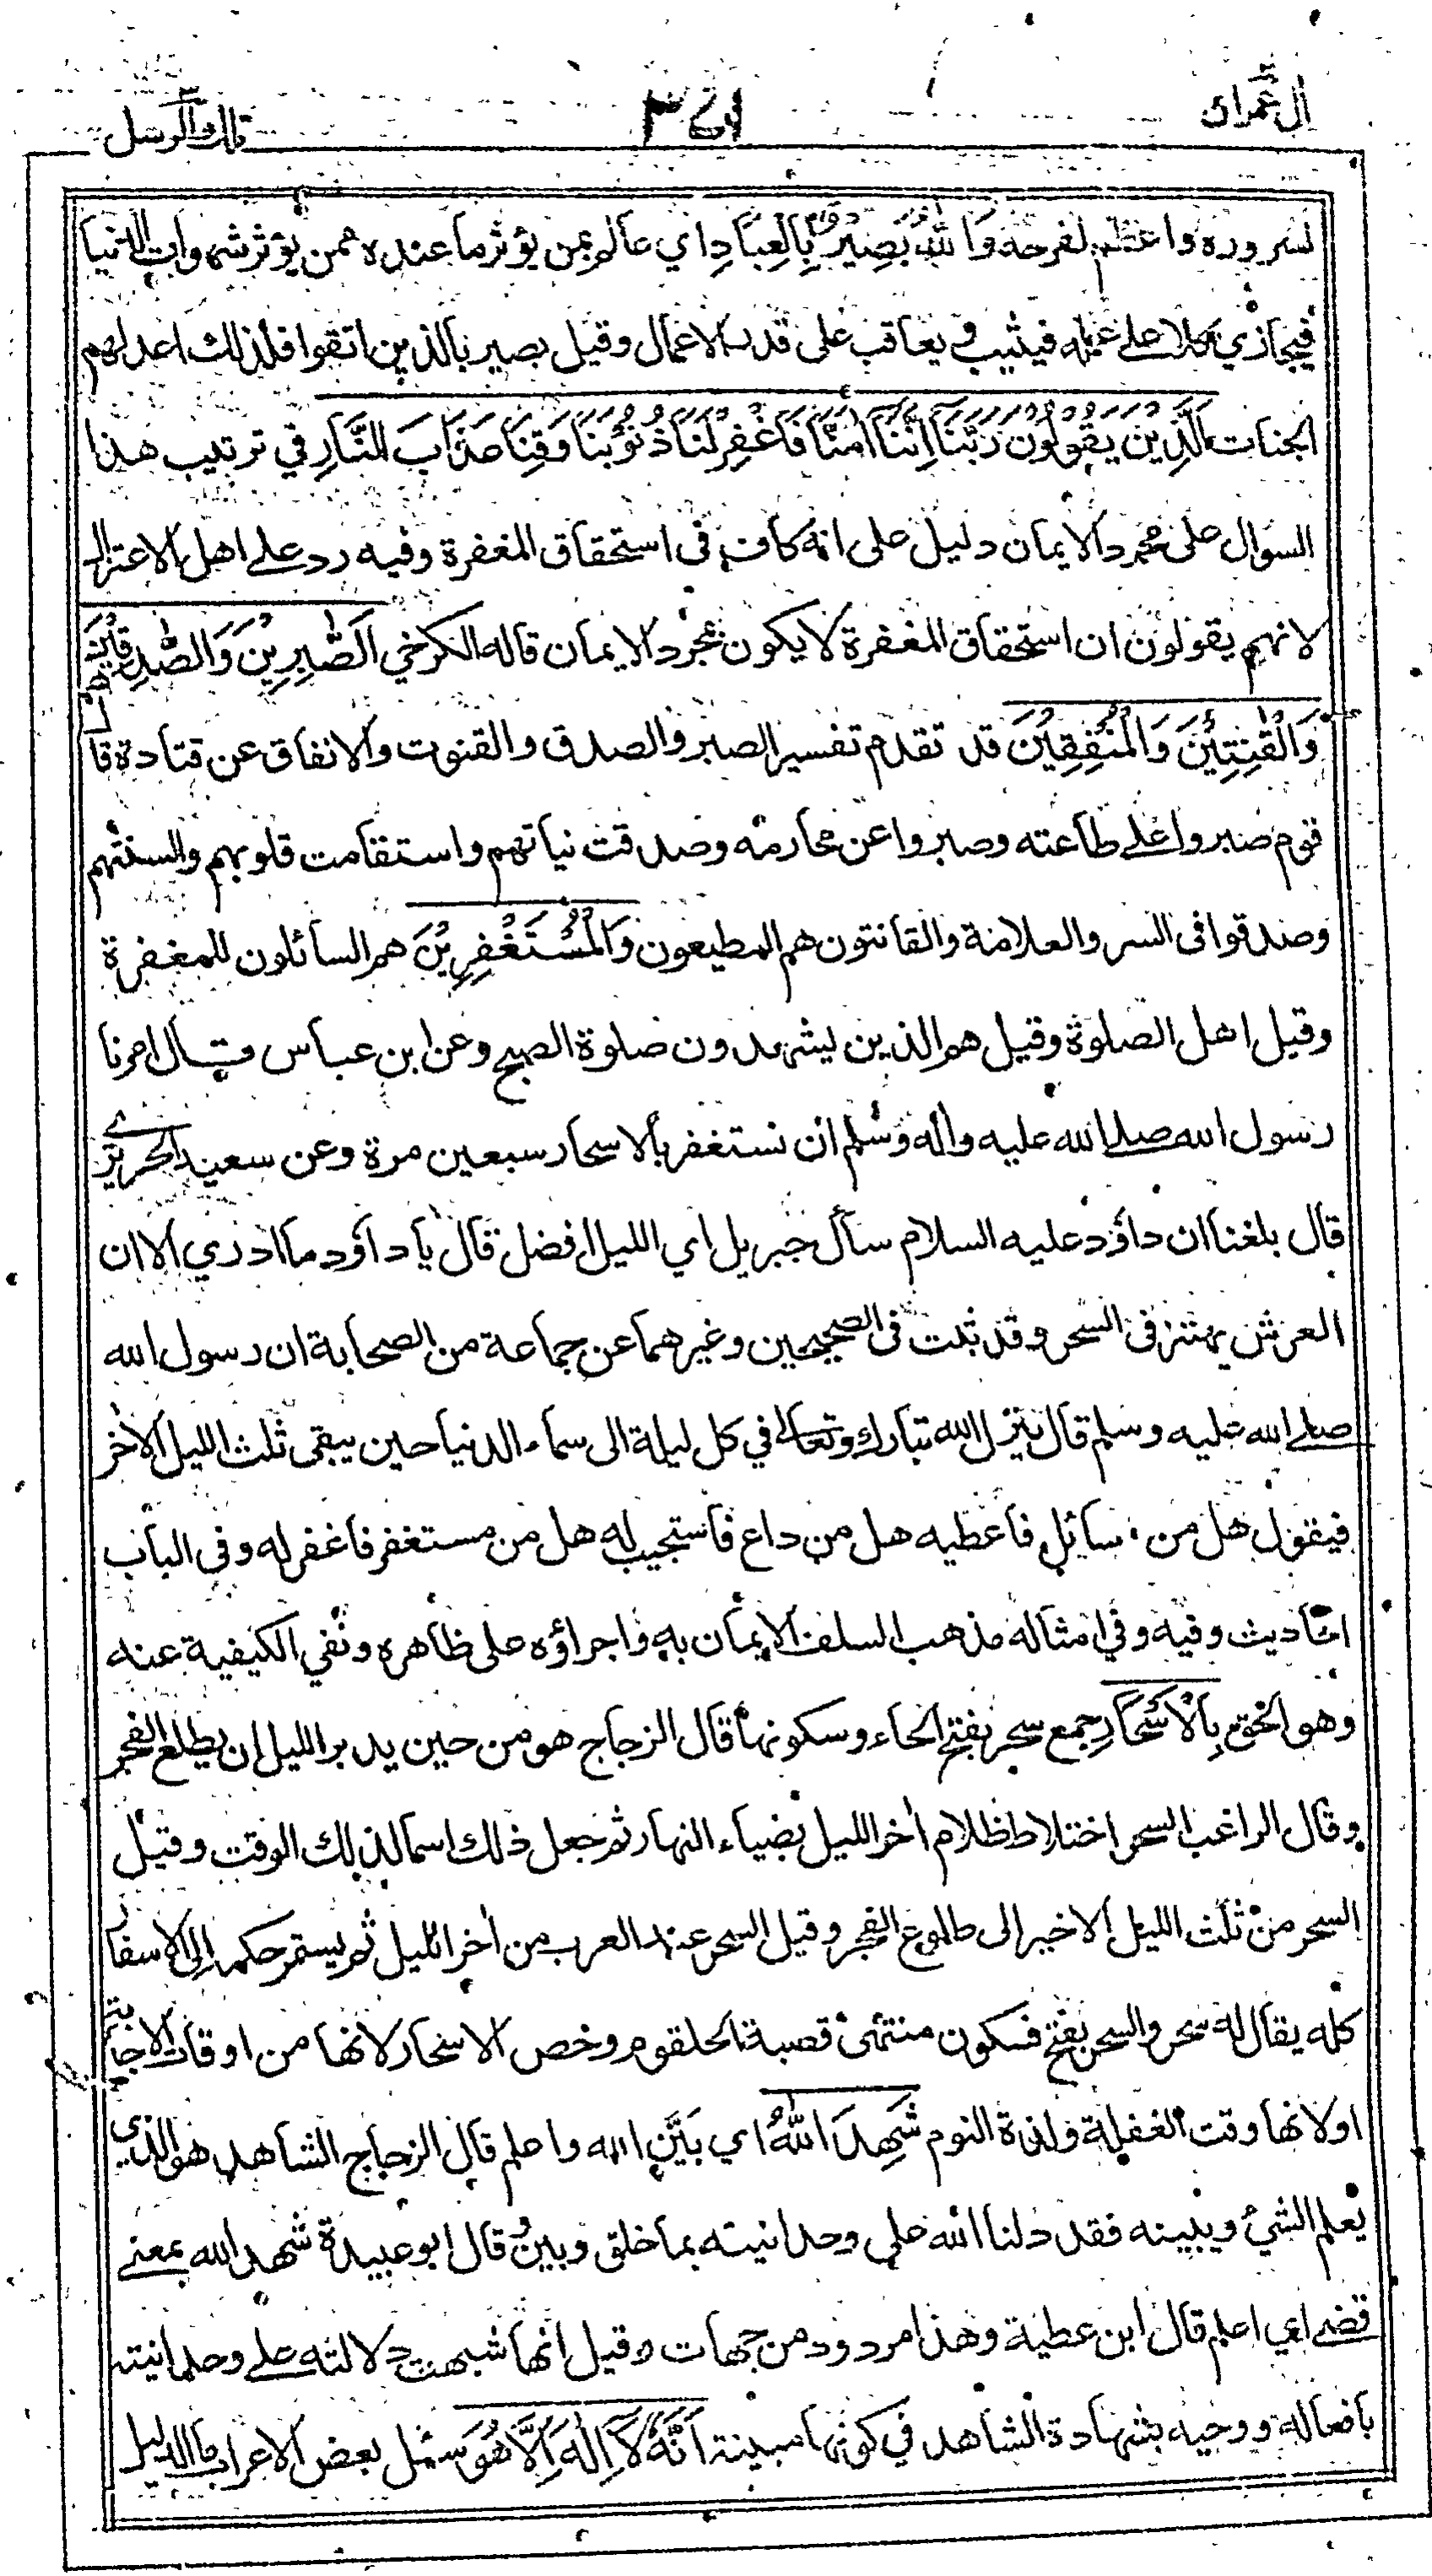 اٰل عمران
٣٤١
تلك الرسل
لسروره واعظم لفرحه وَاللهُ بَصِيْرٌۢ بِالْعِبَادِ اي عالم بمن يؤثر ما عنده ممن يؤثر شهوات الدنيا
فيجازي كلا على عمله فيثيب ويعاقب على قدر الاعمال وقيل بصير بالذين اتقوا فلذلك اعد لهم
الجنات اَلَّذِيْنَ يَقُوْلُوْنَ رَبَّنَآ اِنَّنَآ اٰمَنَّا فَاغْفِرْ لَنَا ذُنُوْبَنَا وَقِنَا عَذَابَ النَّارِ في ترتيب هذا
السوال على مجرد الايمان دليل على انه كاف في استحقاق المغفرة وفيه رد على اهل الاعتزال
لانهم يقولون ان استحقاق المغفرة لا يكون بمجرد الايمان قاله الكرخي اَلصّٰبِرِيْنَ وَالصّٰدِقِيْنَ
وَالْقٰنِتِيْنَ وَالْمُنْفِقِيْنَ قد تقدم تفسير الصبر والصدق والقنوت والانفاق عن قتادة قال هم
قوم صبروا على طاعته وصبروا عن محارمه وصدقت نياتهم واستقامت قلوبهم والسنتهم
وصدقوا في السر والعلانة والقانتون هم المطيعون وَالْمُسْتَغْفِرِيْنَ هم السائلون للمغفرة
وقيل اهل الصلوة وقيل هم الذين يشهدون صلوة الصبح وعن ابن عباس قال امرنا
رسول الله صلى الله عليه واله وسلم ان نستغفر بالاسحار سبعين مرة وعن سعيد الجريري
قال بلغنا ان داؤد عليه السلام سأل جبريل اي الليل افضل قال يا داؤد ما ادري الا ان
العرش يهتز في السحر وقد ثبت في الصحيحين وغيرهما عن جماعة من الصحابة ان رسول الله
صلى الله عليه وسلم قال ينزل الله تبارك وتعالى في كل ليلة الى سماء الدنيا حين يبقى ثلث الليل الاٰخر
فيقول هل من سائل فاعطيه هل من داع فاستجيب له هل من مستغفر فاغفر له وفي الباب
احاديث وفيه وفي امثاله مذهب السلف الايمان به واجراؤه على ظاهره ونفي الكيفية عنه
وهو الحق بِالْاَسْحَارِ جمع سحر بفتح الحاء وسكونها قال الزجاج هو من حين يدبر الليل ان يطلع الفجر
وقال الراغب السحر اختلاط ظلام اٰخر الليل بضياء النهار ثم جعل ذلك اسما لذلك الوقت وقيل
السحر من ثلث الليل الاخير الى طلوع الفجر وقيل السحر عند العرب من اٰخر الليل ثم يستمر حكمه الى الاسفار
كله يقال له سحر والسحر بفتح فسكون منتهى قصبة الحلقوم وخص الاسحار لانها من اوقات الاجابة
او لانها وقت الغفلة ولذة النوم شَهِدَ اللهُ اي بَيَّن الله واعلم قال الزجاج الشاهد هو الذي
يعلم الشئ ويبينه فقد دلنا الله على وحدانيته بما خلق وبين قال ابو عبيدة شهد الله بمعنى
قضى اي اعلم قال ابن عطية وهذا مردود من جهات وقيل انها شبهت دلالته على وحدانيته
بافعاله ووحيه بشهادة الشاهد في كونها مبينة اَنَّهٗ لَآ اِلٰهَ اِلَّا هُوَ سئل بعض الاعراب ما الدليل